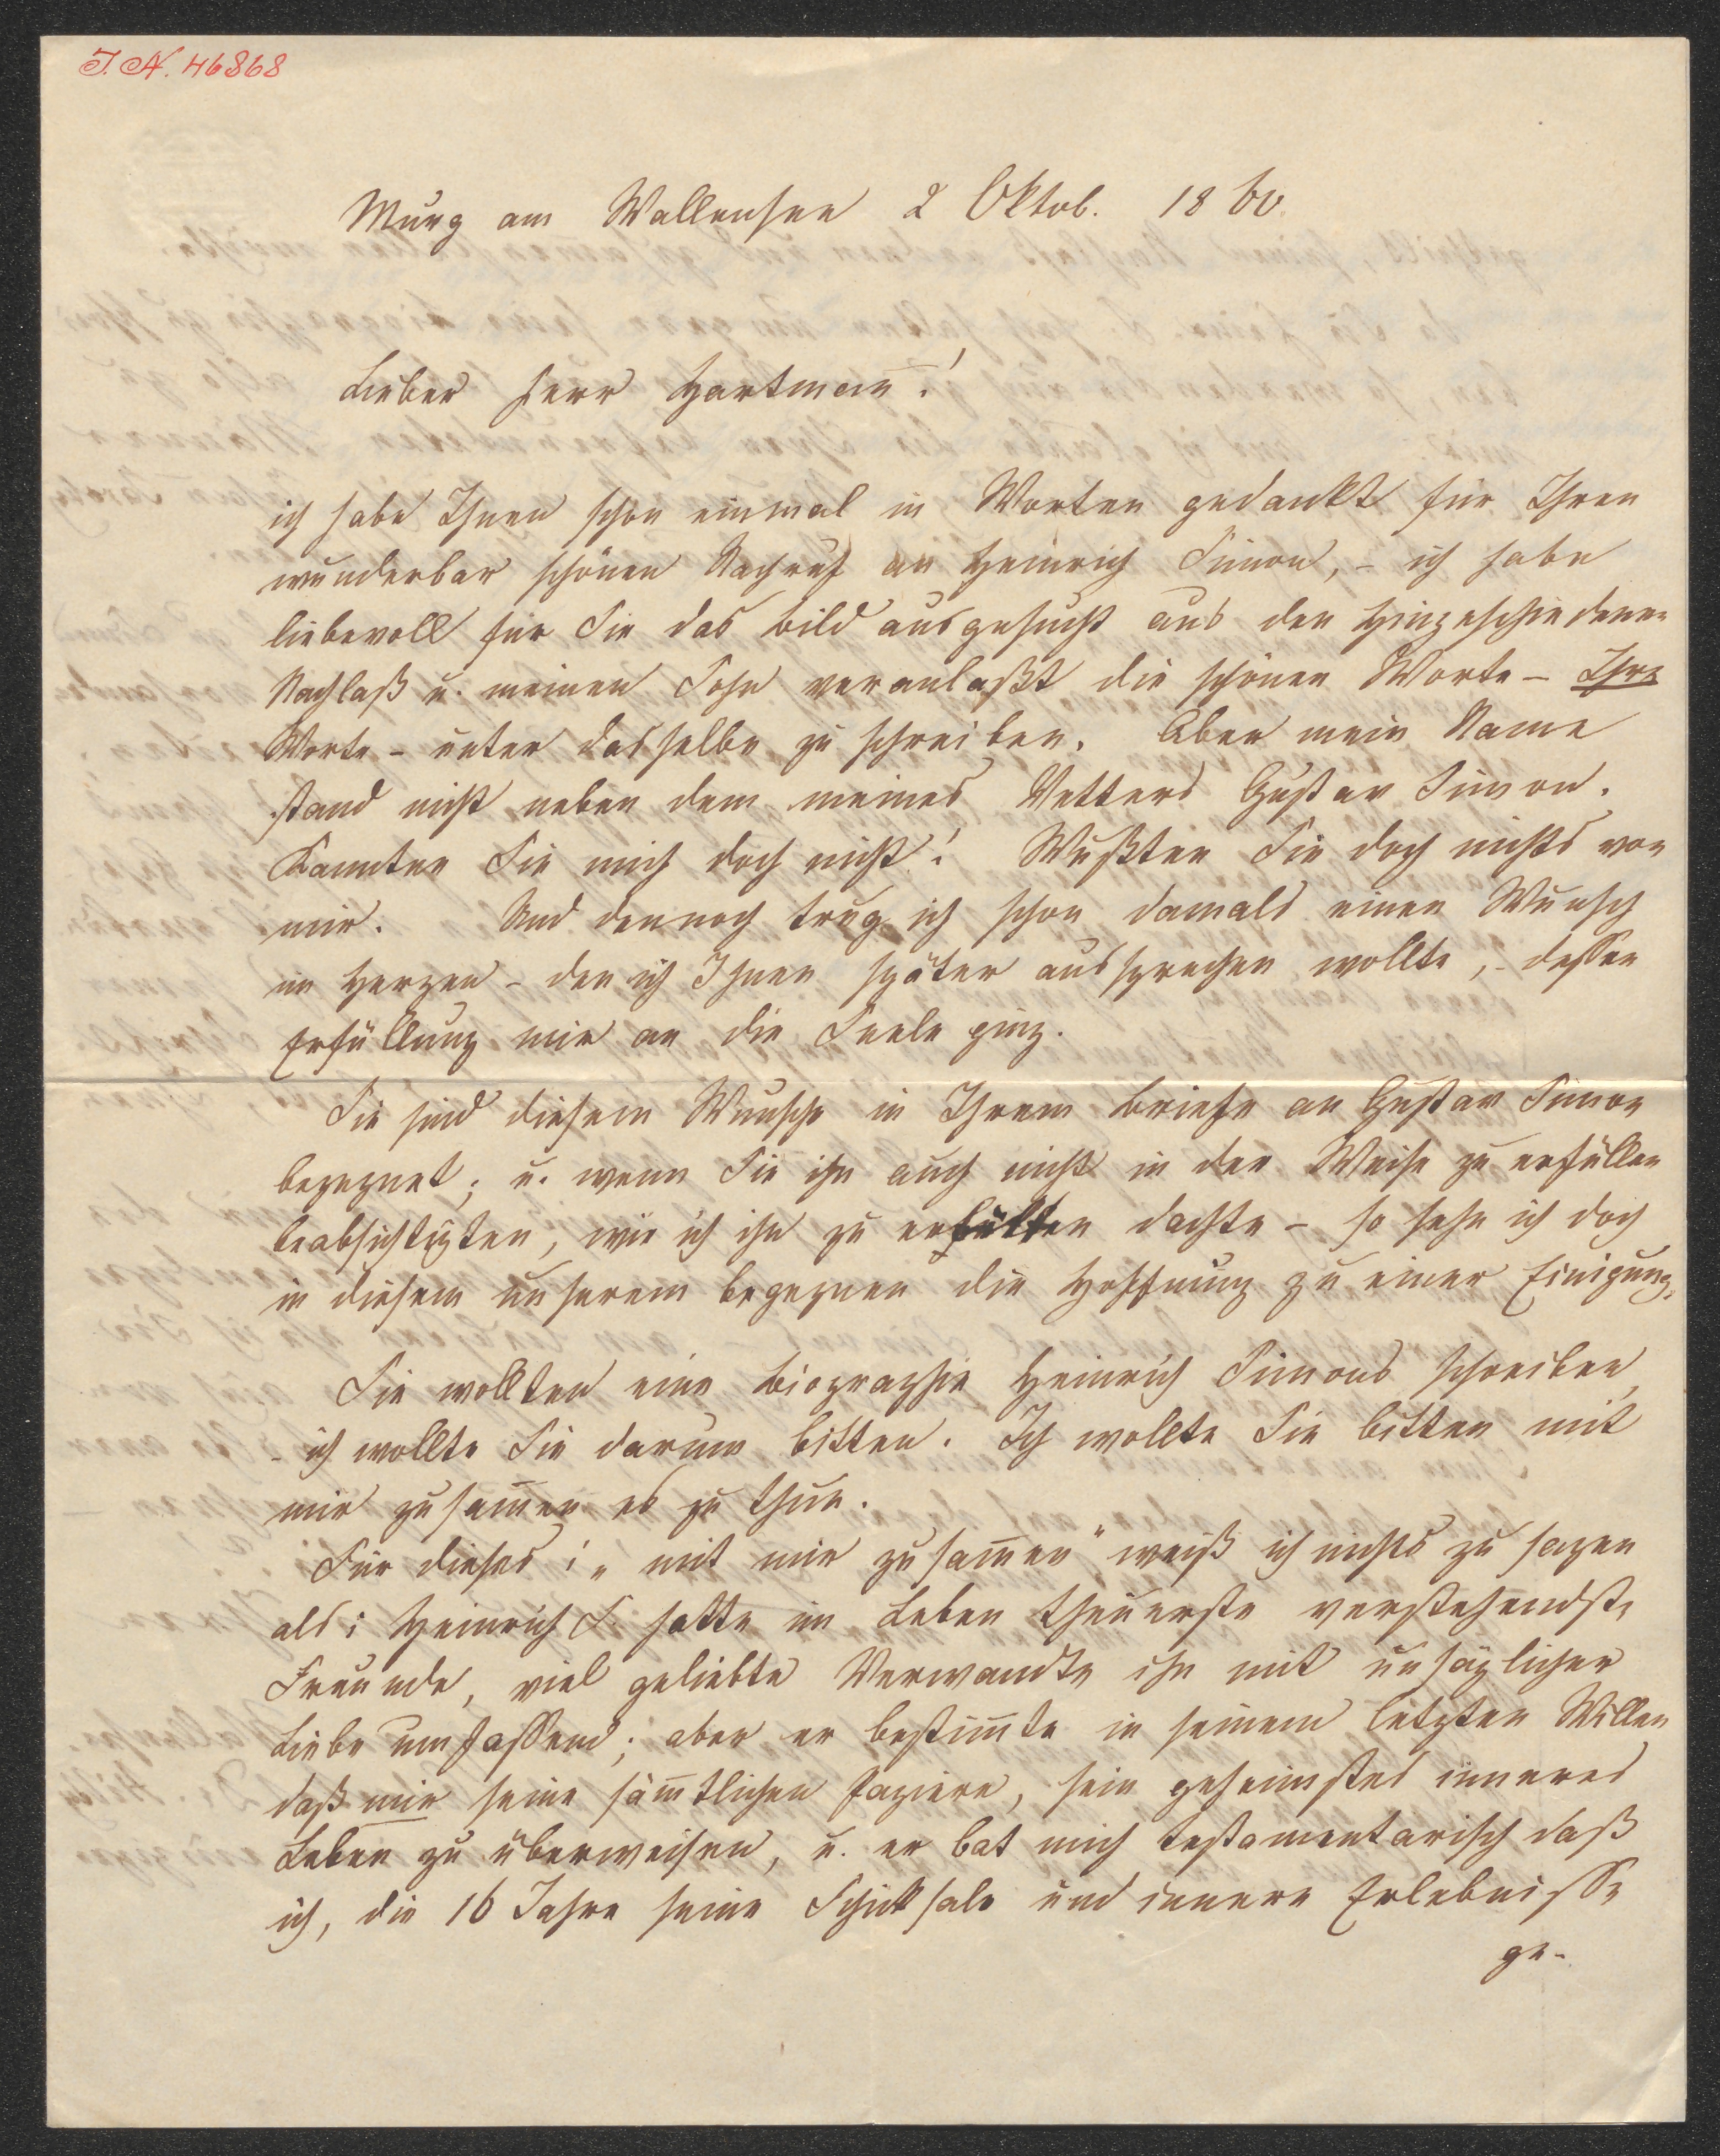 I. N. 46868
Murg am Wallensee 2 Oktob. 1860.
Lieber Herr Hartmañ!
ich habe Ihnen schon einmal in Worten gedankt für Ihren
wunderbar schönen Nachruf an Heinrich Simon, – ich habe
liebevoll für Sie das Bild ausgesucht aus des Hingeschiedenen
Nachlaß u. meinen Sohn veranlaßt die schönen Worte – Ihre
Worte – unter dasselbe zu schreiben. Aber mein Name
stand nicht neben dem meines Vetters Gustav Simon.
Kannten Sie mich doch nicht! Wußten Sie doch nichts von
mir. Und dennoch trug ich schon damals einen Wunsch
im Herzen – den ich Ihnen später aussprechen wollte, – dessen
Erfüllung mir an die Seele ging.
Sie sind diesem Wunsche in Ihrem Briefe an Gustav Simon
begegnet; u. wenn Sie ihn auch nicht in der Weise zu erfüllen
beabsichtigten, wie ich ihn zu erfüllen dachte – so sehe ich doch
in diesem unserem Begegnen die Hoffnung zu einer Einigung.
Sie wollten eine Biographie Heinrich Simons schreiben,
– ich wollte Sie darum bitten. Ich wollte Sie bitten mit
mir zusam̄en es zu thun.
Für dieses: „mit mir zusam̄en" weiß ich nichts zu sagen
als: Heinrich S. hatte im Leben theuerste verstehendste
Freunde, viel geliebte Verwandte ihn mit unsäglicher
Liebe umfassend; aber er bestim̄te in seinem letzten Willen
daß mir seine säm̄tlichen Papiere, sein geheimstes inneres
Leben zu überweisen, u. er bat mich testamentarisch daß
ich, die 16 Jahre seine Schicksale und innere Erlebnisse
ge-